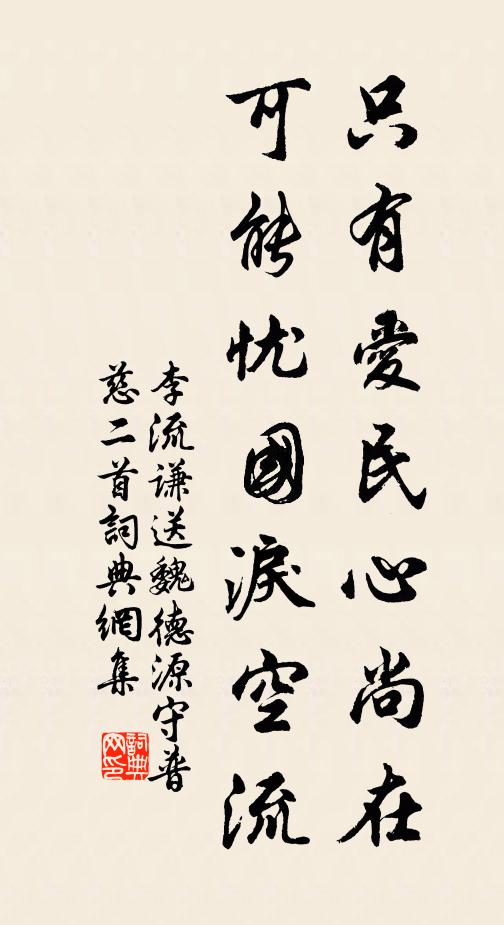 只有愛民心尚在
可能忧國淚空流
李流谦送魏德源守普
慈二首詞典網集
詞典网印